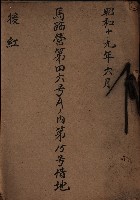 昭和十九年六月
馬酒營第四六号ノ内第15号借地
援紅